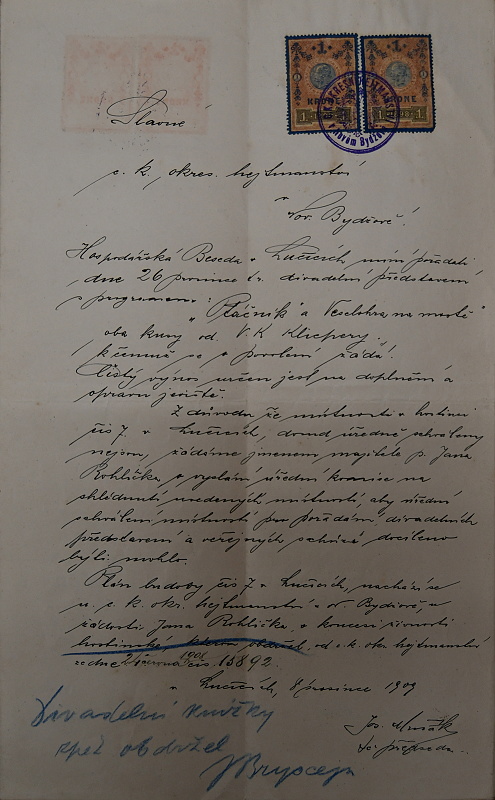 1 1
KRONE KRONE
1 1
Slavné
c. k. okres. hejtmanství
v
Nov. Bydžově!
Hospodářská Beseda v Lučicích, míní pořádati
dne 26 prosince t. r. divadelní představení
s programem:
„Ptáčník" a Veselohra na mostě"
oba kusy od V. K. Klicpery.
k čemuž se o povolení žádá!
Čistý výnos určen jest na doplnění a
opravu jeviště.
Z důvodu že místnosti v hostinci
čís 7. v Lučicích, dosud úředně schváleny
nejsou, žádáme jmenem majitele p. Jana
Rohlíčka, o vyslání úřední komise na
shlédnutí uvedených místností, aby úřední
schválení místností pro pořádání divadelních
představení a veřejných schůzí docíleno
býti mohlo.
Plán budovy čís 7 v Lučicích, nachází se
u c. k. okr. hejtmanství v N. Bydžově, v
žádosti Jana Rohlíčka o koncesi živnosti
hostinské, kterou obdržel od c. k. okr. hejtmanství
ze dne 24 června 1901 čís. 15892.
v Lučicích, 8 prosince 1909
Jos.
t. č. předseda.
Divadelní knížky
zpět obdržel